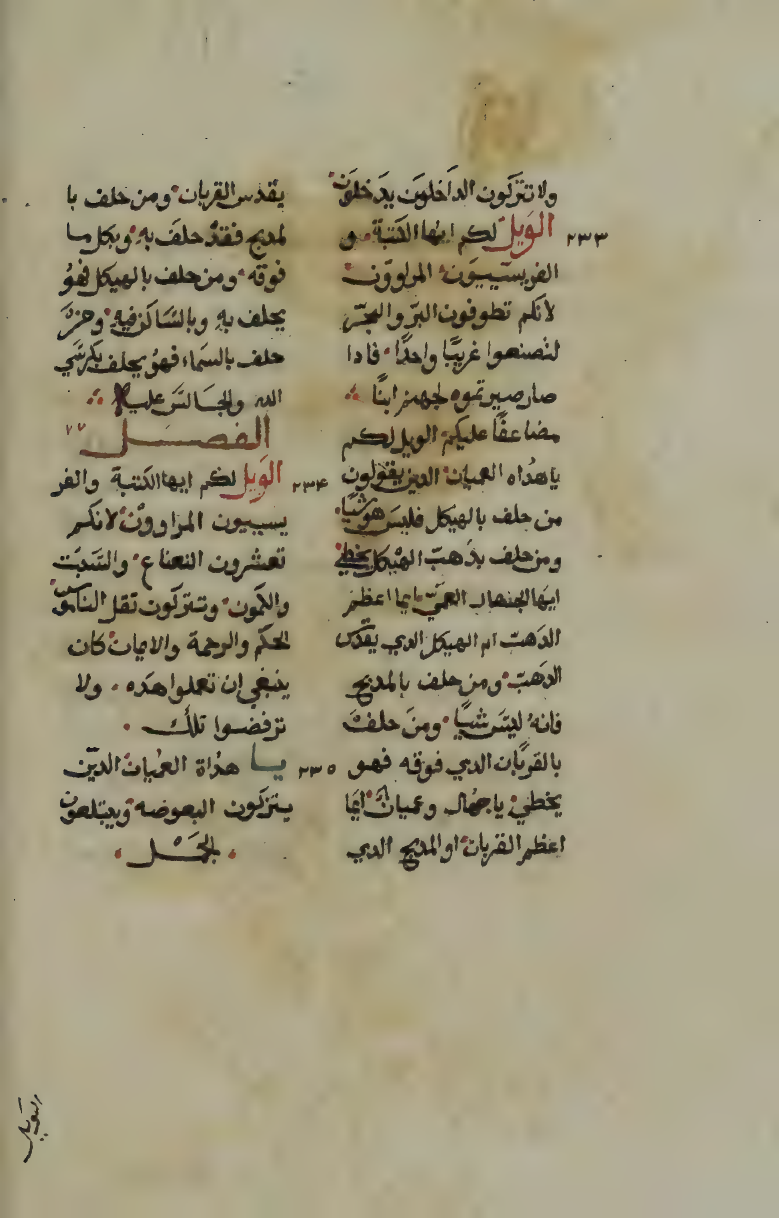 ولا تتركون الداخلون يدخلون
٢٣٣ الويل لكم ايها الكتبة و
الفريسييون المراوون
لانكم تطوفون البر والبحر
لتصنعوا غريبًا واحدًا فادا
صار صيرتموه لجهنم ابنًا
مضاعفًا عليكم الويل لكم
ياهداه العميان الدين يقولون
من حلف بالهيكل فليس هو شيًا
ومن حلف بدهب الهيكل يخطي
ايها الجهال العمي ايما اعظم
الدهب ام الهيكل الدي يقدس
الدهب ومن حلف بالمدبح
فانه ليس شيًا ومن حلف
بالقربان الدي فوقه فهو
يخطي ياجهال وعميان ايما
اعظم القربان او المدبح الدي
يقدس القربان ومن حلف با
لمدبح فقد حلف به وبكل ما
فوقه ومن حلف بالهيكل فهو
يحلف به وبالساكن فيه ومن
حلف بالسماء فهو يحلف بكرسي
الله والجالس عليه
الفصل ٧٧
٢٣٤ الويل لكم ايها الكتبة والفر
يسييون المراوون لانكم
تعشرون النعناع والشبت
والكمون وتتركون تقل الناموس
الحكم والرحمة والايمان كان
ينبغي ان تعملوا هده ولا
ترفضوا تلك
٢٣٥ يا هداة العميان الدين
يتركون البعوضه ويبتلعون
الجمل
الويل